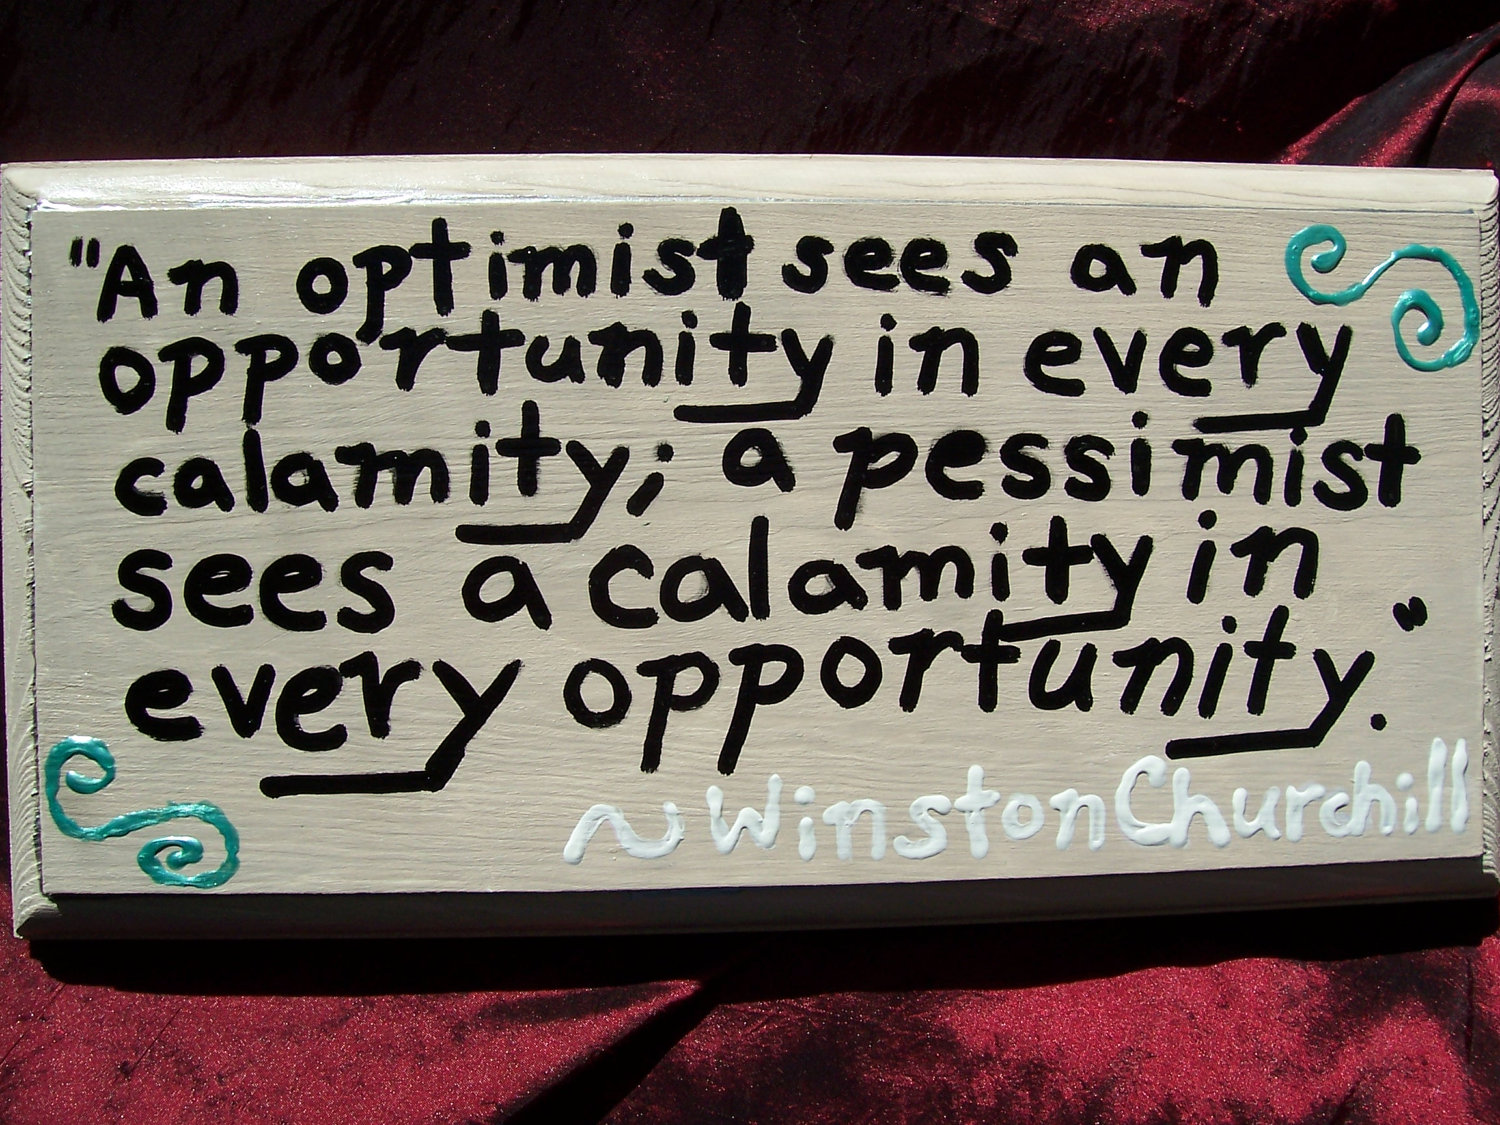 "An optimist sees an
opportunity in every
calamity; a pessimist
sees a calamity in
every opportunity."
~Winston Churchill